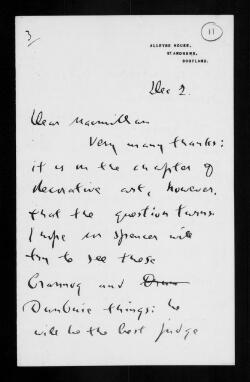 3
11
ALLEYNE HOUSE,
ST ANDREWS,
SCOTLAND.
Dec 2.
Dear Macmillan
Very many thanks:
it is on the chapter of
decorative art, however,
that the question turns.
I hope Mr Spencer will
try to see those
Crannog and
Dunbuie things: he
will be the best judge